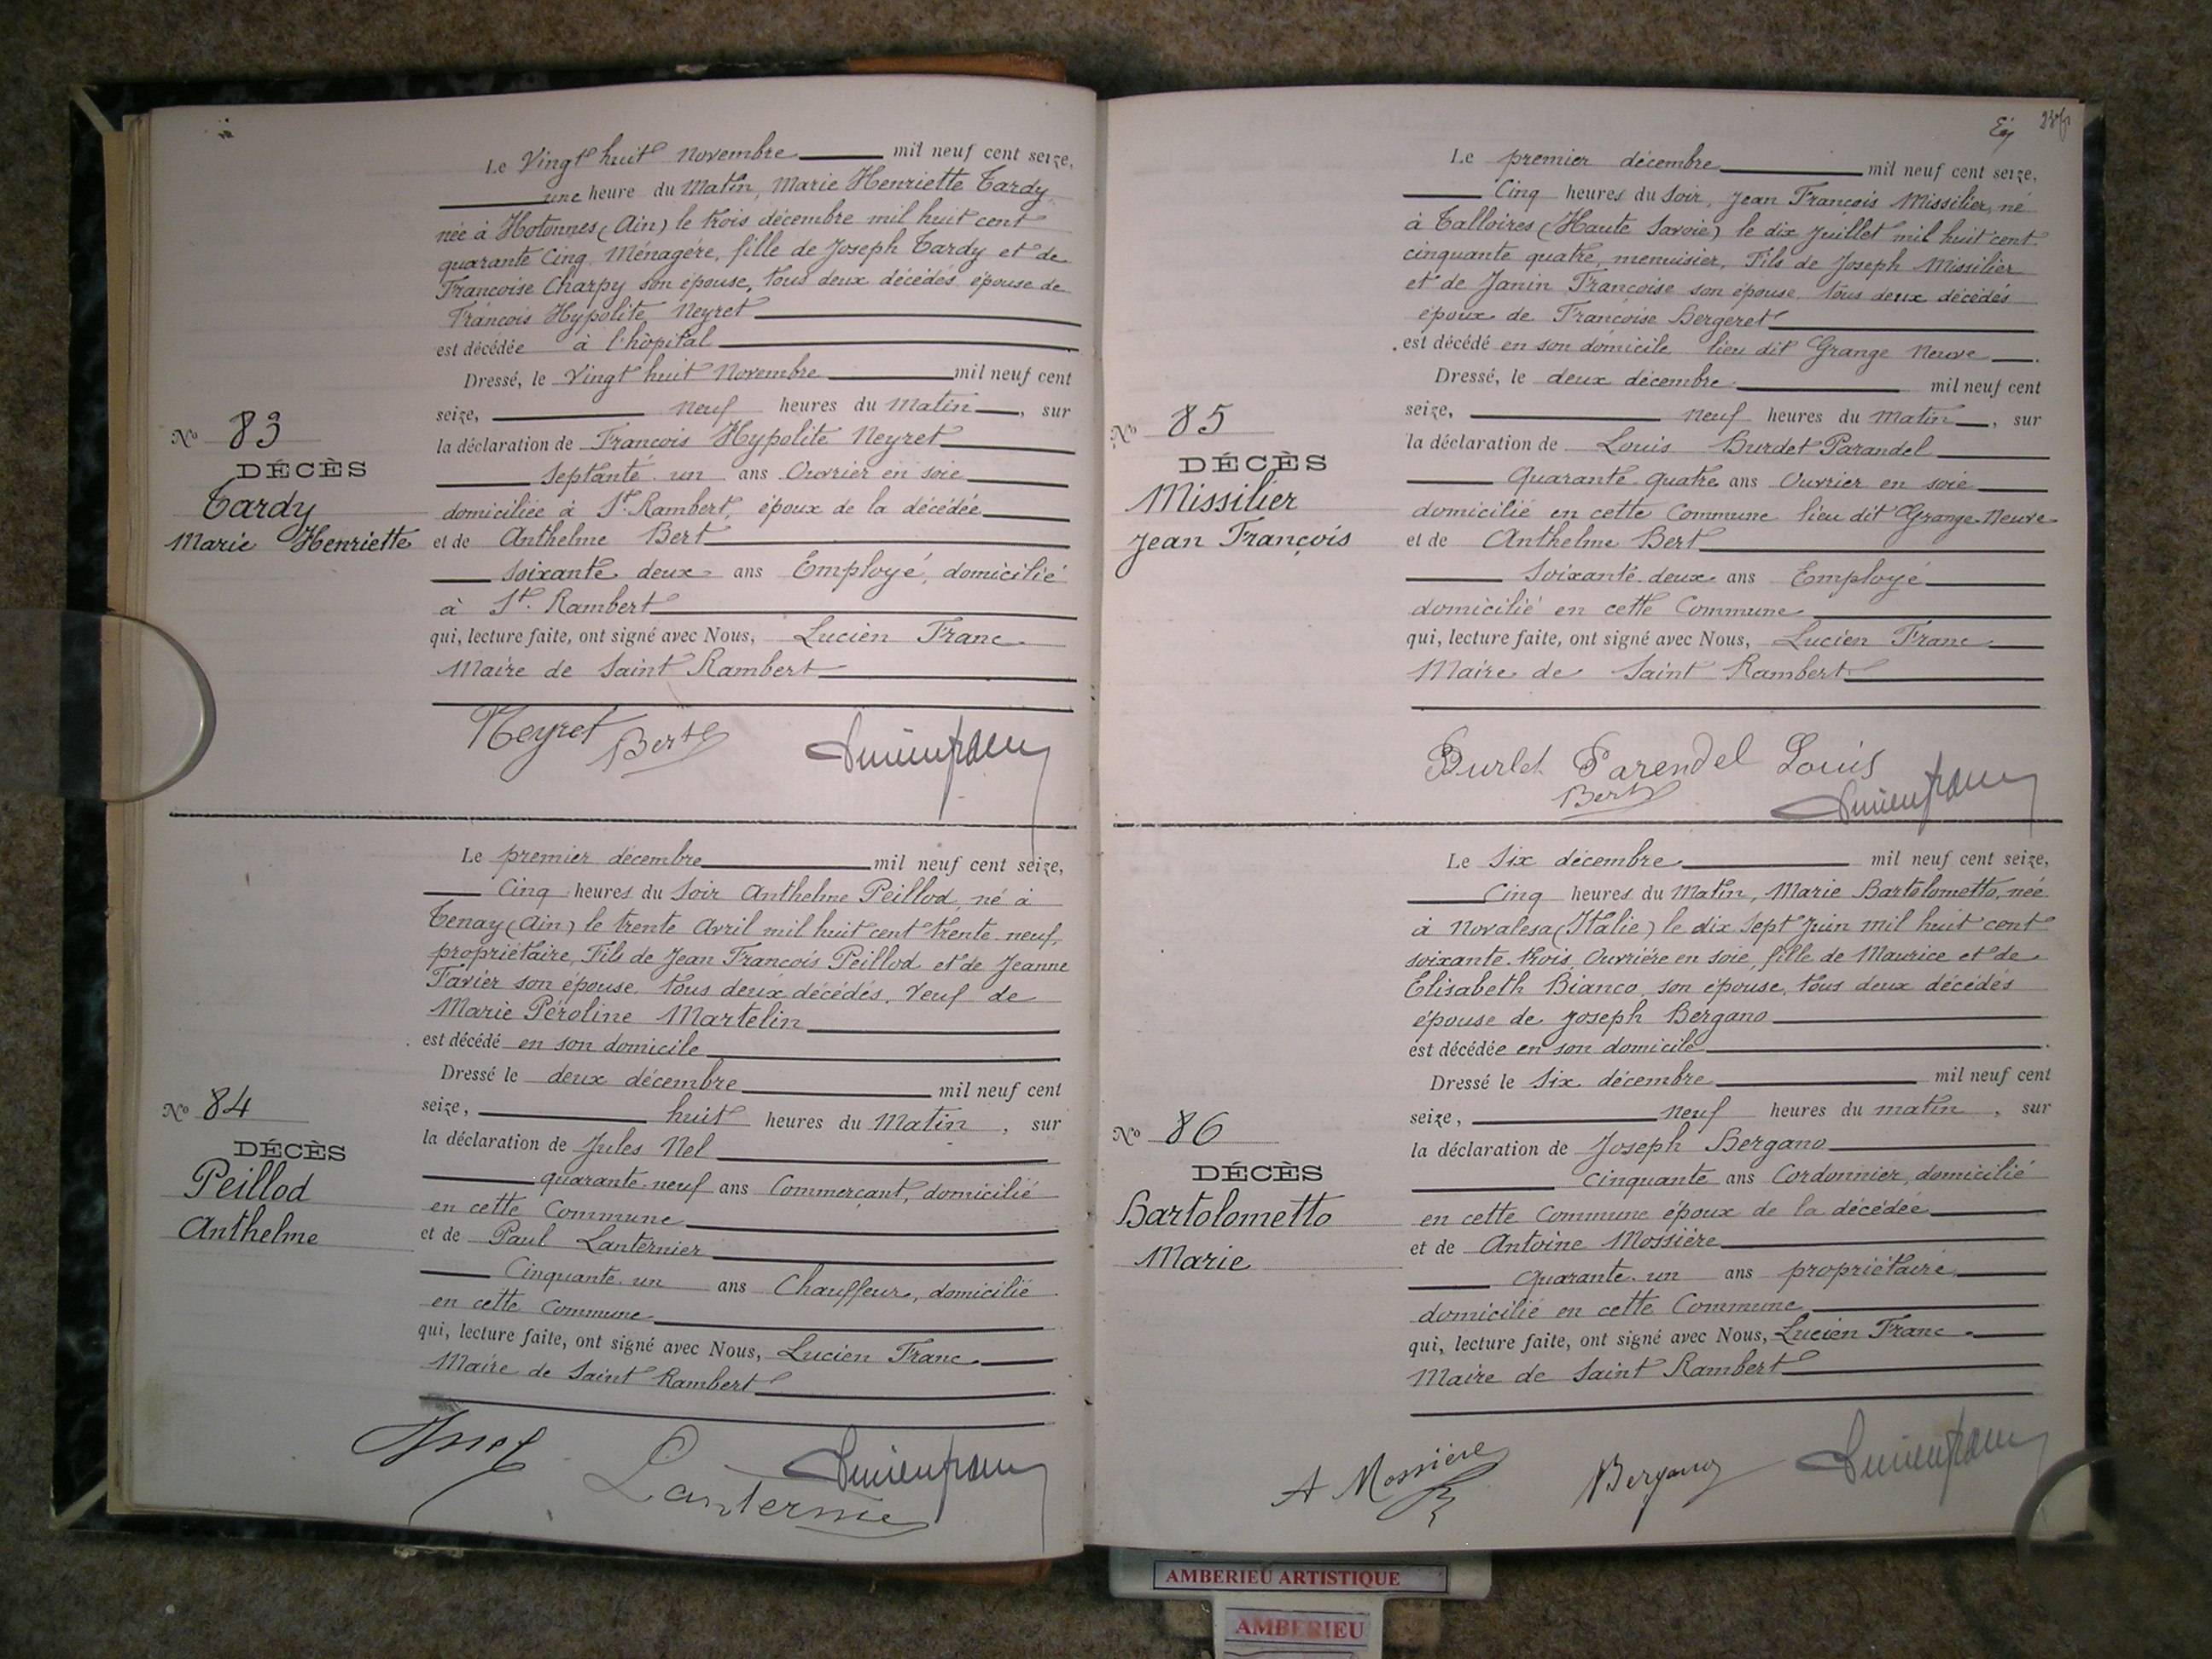 Le Vingt huit Novembre mil neuf cent seize,
une heure du Matin, Marie Henriette Tardy,
née à Hotonnes (Ain) le trois décembre mil huit cent
quarante Cinq, Ménagère, fille de Joseph Tardy et de
Françoise Charpy son épouse, tous deux décédés épouse de
François Hypolite Neyret
est décédée à l'hôpital
Dressé, le Vingt huit Novembre mil neuf cent
seize, Neuf heures du Matin, sur
la déclaration de François Hypolite Neyret
Septante un ans Ouvrier en soie
domiciliée à St. Rambert, époux de la décédée
et de Anthelme Bert
Soixante deux ans Employé, domicilié
à St. Rambert
qui, lecture faite, ont signé avec Nous, Lucien Franc
Maire de Saint Rambert
No 83
DÉCÈS
Tardy
Marie Henriette
Neyret Bert
Le premier décembre mil neuf cent seize,
Cinq heures du Soir Anthelme Peillod, né à
Tenay (Ain) le trente Avril mil huit cent trente neuf,
propriétaire, Fils de Jean François Peillod et de Jeanne
Favier son épouse, tous deux décédés, Veuf de
Marie Péroline Martelin
est décédé en son domicile
Dressé le deux décembre mil neuf cent
seize, huit heures du Matin, sur
la déclaration de Jules Nel
quarante neuf ans Commerçant, domicilié
en cette Commune
et de Paul Lanternier
Cinquante un ans Chauffeur, domicilié
en cette Commune
qui, lecture faite, ont signé avec Nous, Lucien Franc
Maire de Saint Rambert
No 84
DÉCÈS
Peillod
Anthelme
Le premier décembre mil neuf cent seize,
Cinq heures du Soir, Jean François Missilier, né
à Talloires (Haute Savoie) le dix Juillet mil huit cent
cinquante quatre, menuisier, Fils de Joseph Missilier
et de Janin Françoise son épouse, tous deux décédés
époux de Françoise Bergeret
est décédé en son domicile lieu dit Grange Neuve
Dressé, le deux décembre mil neuf cent
seize, Neuf heures du Matin, sur
la déclaration de Louis Burdet Parandel
Quarante quatre ans Ouvrier en soie
domicilié en cette Commune lieu dit Grange Neuve
et de Anthelme Bert
Soixante deux ans Employé
domicilié en cette Commune
qui, lecture faite, ont signé avec Nous, Lucien Franc
Maire de Saint Rambert
No 85
DÉCÈS
Missilier
Jean François
Burlet Parendel Louis
Bert
Le Six décembre mil neuf cent seize,
Cinq heures du Matin, Marie Bartolometto, née
à Novalesa (Italie) le dix Sept Juin mil huit cent
soixante trois, Ouvrière en soie, fille de Maurice et de
Elisabeth Bianco, son épouse, tous deux décédés
épouse de Joseph Bergano
est décédée en son domicile
Dressé le Six décembre mil neuf cent
seize, Neuf heures du matin, sur
la déclaration de Joseph Bergano
Cinquante ans Cordonnier, domicilié
en cette Commune époux de la décédée
et de Antoine Mossière
Quarante un ans propriétaire
domicilié en cette Commune
qui, lecture faite, ont signé avec Nous, Lucien Franc
Maire de Saint Rambert
No 86
DÉCÈS
Bartolometto
Marie
A Mossière Bergano
AMBERIEU ARTISTIQUE
AMBERIEU